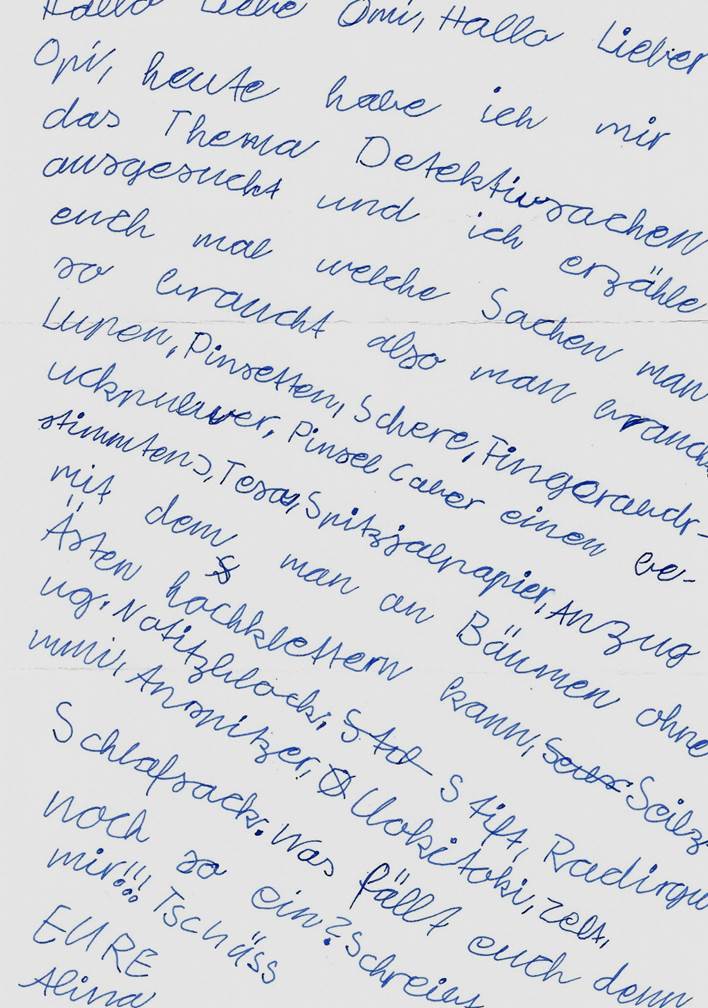 Hallo Liebe Omi, Hallo Lieber
Opi, heute habe ich mir
das Thema Detektivsachen
ausgesucht und ich erzähle
euch mal welche Sachen man
so braucht also man brauch
Lupen, Pinsetten, Schere, Fingerabdr-
uckpulver, Pinsel (aber einen be-
stimmten), Tesa, Spitzjalpapier, Anzug
mit dem man an Bäumen ohne
Ästen hochklettern kann, Seilz
ug, Notitzblock, Stift, Radirgu
mmi, Anspitzer, Uokitoki, Zelt,
Schlafsack. Was fällt euch denn
noch so ein? Schreibt
mir!!! Tschüss
EURE
Alina